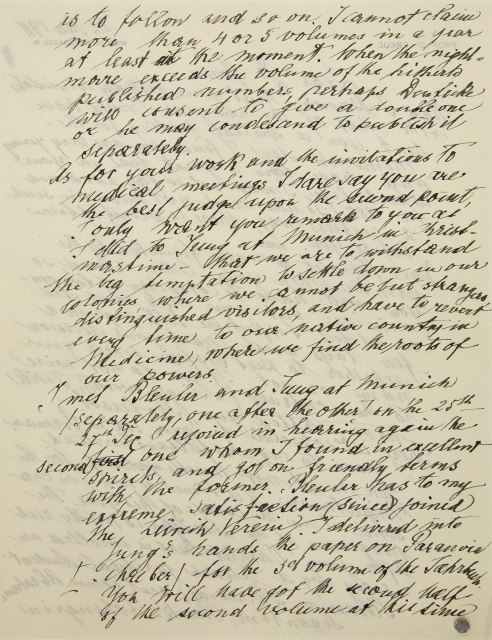 is to follow and so on. I cannot claim
more than 4 or 5 volumes in a year
at least at the moment. When the night-
more exceeds the volume of the hitherto
published numbers, perhaps Deuticke
will consent to give a double one
or he may condescend to publish it
separately.
As for your work and the invitations to
medical meetings I dare say you are
the best judge upon the second point,
I only want you remark to you as
I did to Jung at Munich in Christ-
mastime – that we are to withstand
the big temptation to settle down in our
colonies where we cannot be but strangers,
distinguished visitors, and have to revert
every time to our native country in
Medicine, where we find the roots of
our powers.
I met Bleuler and Jung at Munich
(separately, one after the other) on the 25th –
27th Dec, rejoiced in hearing again the
second first one whom I found in excellent
spirits, and got on friendly terms
with the former. Bleuler has to my
extreme satisfaction (since) joined
the Zürich Verein. I delivered into
Jung's hands the paper on Paranoia
(Schreber) for the 3d volume of the Jahrbuch.
You will have got the second half
of the second volume at this time